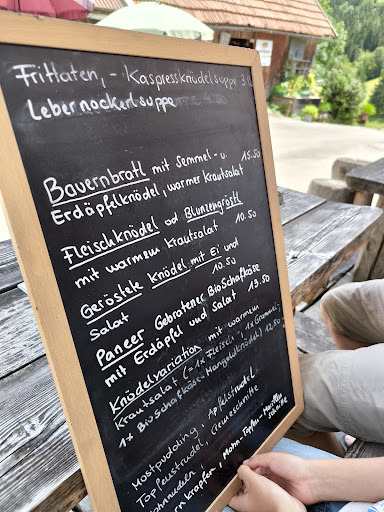 Frittaten,- Kaspressknödelsuppe 3.
Lebernockerlsuppe 4.50
Bauernbratl mit Semmel- u. 15.50
Erdäpfelknödel, warmer Krautsalat
Fleischknödel od Blunzengröstl
mit warmem Krautsalat 10.90
Geröstete Knödel mit Ei und
Salat 10.50
Paneer Gebratener Bio Schafkäse
mit Erdäpfel und Salat 13.50
Knödelvariation mit warmem
Krautsalat (= 1x Fleisch-, 1x Grammel-
1x Bio Schafkäse-Mangoldknödel) 12.50
Mostpudding, Apfelstrudel
Topfenstrudel, Cremeschnitte
krapfen, Mohn-Topfen-Marillen
schnitte